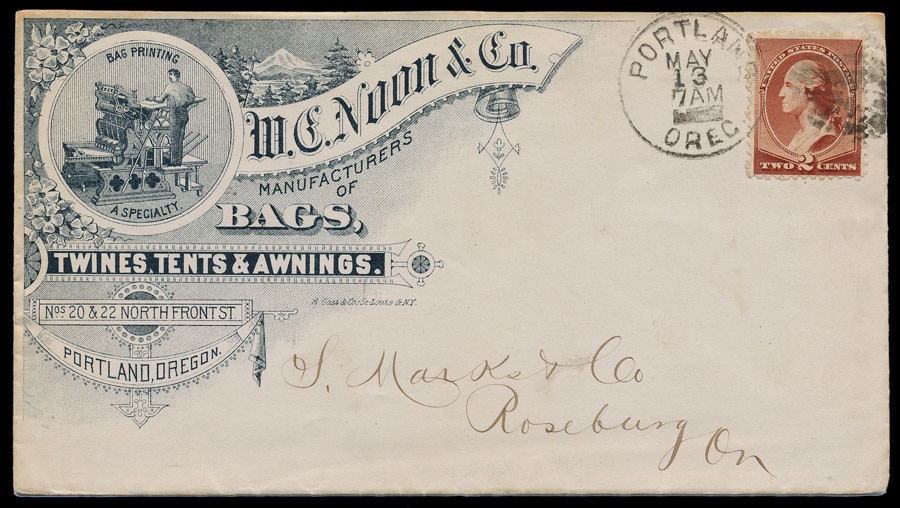 BAG PRINTING
A SPECIALTY.
W.C. Noon & Co.
MANUFACTURERS
OF
BAGS,
TWINES, TENTS & AWNINGS.
Nos 20 & 22 NORTH FRONT ST.
PORTLAND, OREGON.
A. Gast & Co. St. Louis & N.Y.
PORTLAN
MAY
13
7AM
OREG
UNITED STATES POSTAGE
TWO 2 CENTS
S. Marks & Co
Roseburg On